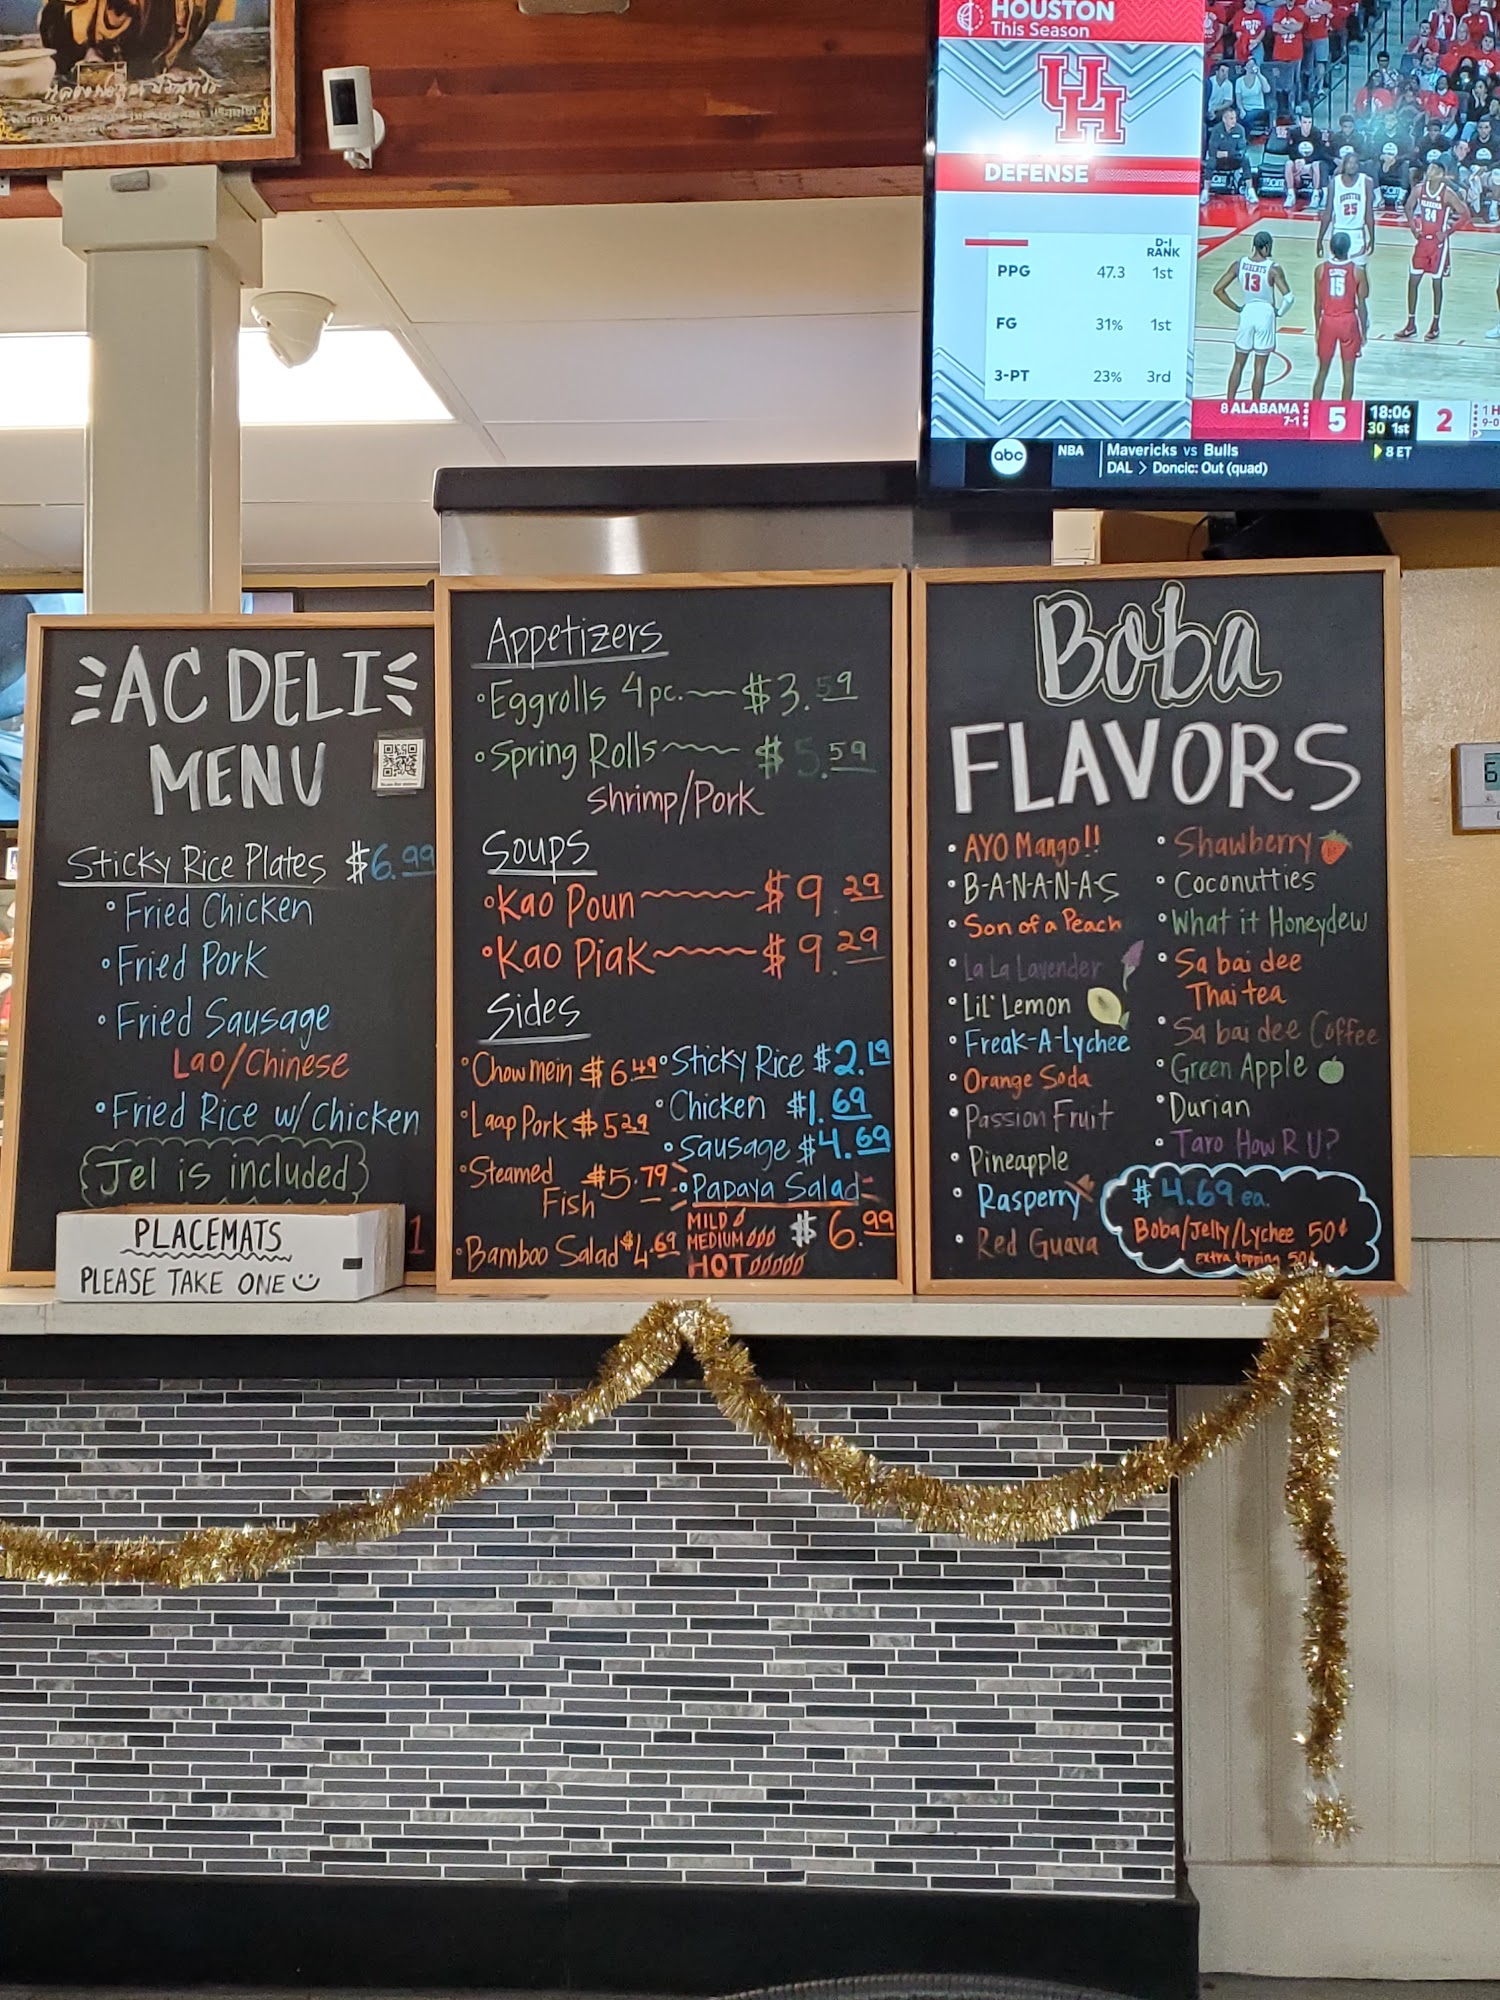 HOUSTON
This Season
DEFENSE
D-I
RANK
PPG 47.3 1st
FG 31% 1st
3-PT 23% 3rd
HOUSTON
25
ALABAMA
24
ROBERTS
13
15
8 ALABAMA 5 18:06 2 1 H
7-1 30 1st 9-0
abc NBA Mavericks vs Bulls 8 ET
DAL > Doncic: Out (quad)
AC DELI
MENU
Sticky Rice Plates $6.99
• Fried Chicken
• Fried Pork
• Fried Sausage
Lao/Chinese
• Fried Rice w/ Chicken
Jel is included
PLACEMATS
PLEASE TAKE ONE
Appetizers
• Eggrolls 4pc. $3.59
• Spring Rolls $5.59
Shrimp/Pork
Soups
• Kao Poun $9.29
• Kao Piak $9.29
Sides
• Chowmein $6.49
• Laap Pork $5.29
• Steamed Fish $5.79
• Bamboo Salad $4.69
• Sticky Rice $2.19
• Chicken $1.69
• Sausage $4.69
• Papaya Salad
MILD
MEDIUM $6.99
HOT
Boba
FLAVORS
• AYO Mango!!
• B-A-N-A-N-A-S
• Son of a Peach
• La La Lavender
• Lil' Lemon
• Freak-A-Lychee
• Orange Soda
• Passion Fruit
• Pineapple
• Rasperry
• Red Guava
• Shawberry
• Coconutties
• What it Honeydew
• Sa bai dee
Thai tea
• Sa bai dee Coffee
• Green Apple
• Durian
• Taro How R U?
$4.69 ea.
Boba/Jelly/Lychee 50¢
extra topping 50¢
6